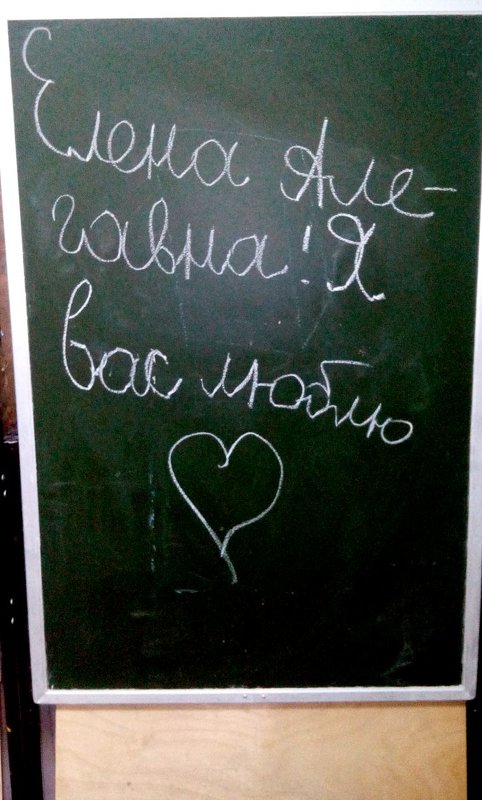 Елена Але-
гавна! Я
вас люблю